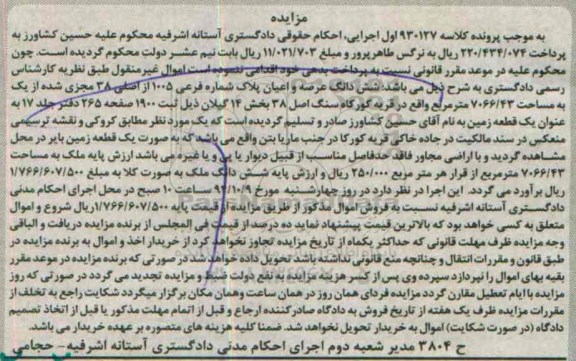 مزایده
به موجب پرونده کلاسه ۹۳۰۱۲۷ اول اجرایی، احکام حقوقی دادگستری آستانه اشرفیه محکوم علیه حسین کشاورز به
پرداخت ۲۲۰/۴۳۴/۰۷۴ ریال به نرگس طاهرپرور و مبلغ ۱۱/۰۲۱/۷۰۳ ریال بابت نیم عشر دولت محکوم گردیده است. چون
محکوم علیه در موعد مقرر قانونی نسبت به پرداخت بدهی خود اقدامی ننموده است اموال غیرمنقول طبق نظریه کارشناس
رسمی دادگستری به شرح ذیل می باشد: شش دانگ عرصه و اعیان پلاک شماره فرعی ۱۰۰۵ از اصلی ۳۸ مجزی شده از یک
به مساحت ۷۰۶۶/۴۳ مترمربع واقع در قریه کورکاه سنگ اصل ۳۸ بخش ۱۴ گیلان ذیل ثبت ۱۹۰۰ صفحه ۲۶۵ دفتر جلد ۱۷ به
عنوان یک قطعه زمین به نام آقای حسین کشاورز صادر و تسلیم گردیده است که یک مورد نظر مطابق کروکی و نقشه ترسیمی
منعکس در سند مالکیت در جاده خاکی قریه کورکا در جنب ماریا بتن واقع می باشد که به صورت یک قطعه زمین بایر در محل
مشاهده گردید و با اراضی مجاور فاقد حدفاصل مناسب از قبیل دیوار یا پی و یا غیره می باشد ارزش پایه ملک به مساحت
۷۰۶۶/۴۳ مترمربع از قرار هر متر مربع ۲۵۰/۰۰۰ ریال و ارزش پایه شش دانگ ملک به صورت کلا به مبلغ ۱/۷۶۶/۶۰۷/۵۰۰
ریال برآورد می گردد. این اجرا در نظر دارد در روز چهارشنبه مورخ ۹۴/۱۰/۹ ساعت ۱۰ صبح در محل اجرای احکام مدنی
دادگستری آستانه اشرفیه نسبت به فروش اموال مذکور از طریق مزایده از قیمت پایه ۱/۷۶۶/۶۰۷/۵۰۰ ریال شروع و اموال
متعلق به کسی خواهد بود که بالاترین قیمت پیشنهاد نماید ده درصد از قیمت فی المجلس از برنده مزایده دریافت و الباقی
وجه مزایده ظرف مهلت قانونی که حداکثر یکماه از تاریخ مزایده تجاوز نخواهد کرد از خریدار اخذ و اموال به برنده مزایده در
طبق قانون و مقررات انتقال و چنانچه منع قانونی نداشته باشد تحویل داده خواهد شد در صورتی که برنده مزایده در موعد مقرر
بقیه بهای اموال را نپردازد سپرده وی پس از کسر هزینه مزایده به نفع دولت ضبط و مزایده تجدید می گردد در صورتی که روز
مزایده با ایام تعطیل مقارن گردد مزایده فردای همان روز در همان ساعت و همان مکان برگزار میگردد شکایت راجع به تخلف از
مقررات مزایده ظرف یک هفته از تاریخ فروش به دادگاه صادرکننده ارجاع و قبل از اتمام مهلت مذکور یا قبل از اتخاذ تصمیم
دادگاه (در صورت شکایت) اموال به خریدار تحویل نخواهد شد. ضمنا کلیه هزینه های متصوره بر عهده خریدار می باشد.
ح ۳۸۰۴ مدیر شعبه دوم اجرای احکام مدنی دادگستری آستانه اشرفیه - حجامی